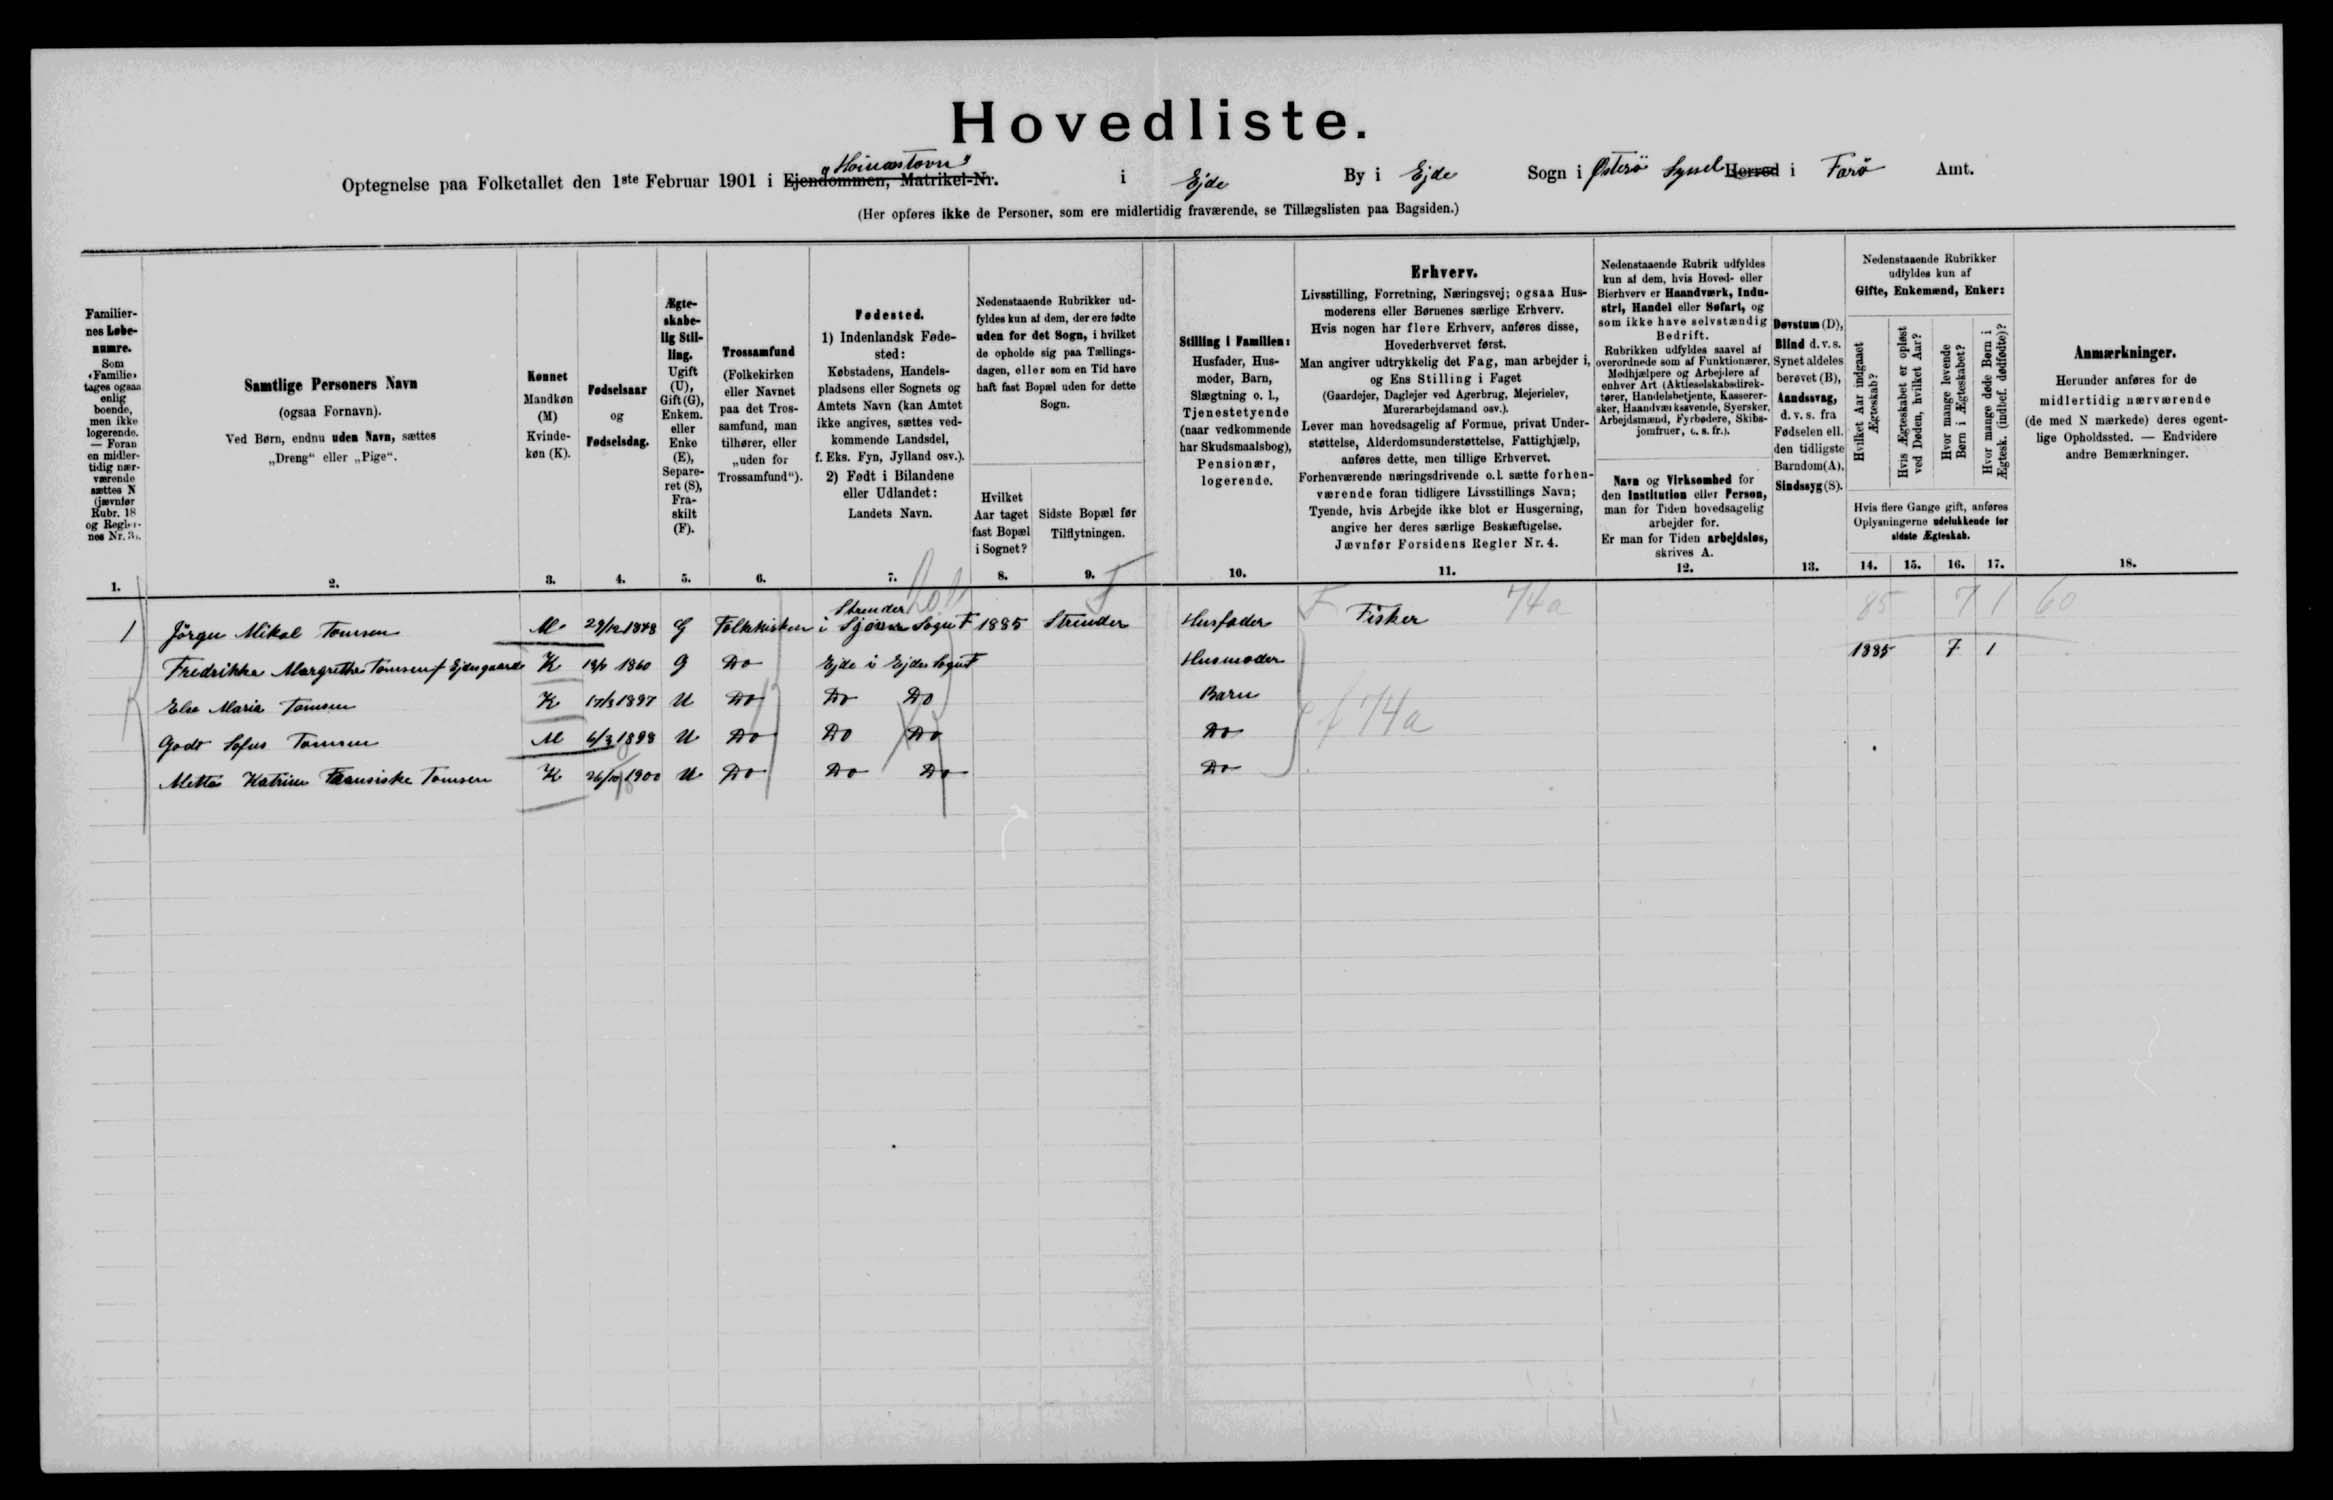 Hovedliste.
Optegnelse paa Folketallet den 1ste Februar 1901 i Ejendommen, Matrikel-Nr. i Ejde By i Ejde Sogn i Østerö Syssel Herred i Færø Amt.
(Her opføres ikke de Personer, som ere midlertidig fraværende, se Tillægslisten paa Bagsiden.)
Familier-
nes Løbe-
numre.
Som
«Familie»
tages ogsaa
enlig
boende,
men ikke
logerende.
— Foran
en midler-
tidig nær-
værende
sættes N
(jævnfør
Rubr. 18
og Regler-
nes Nr. 3).
1.
Samtlige Personers Navn
(ogsaa Fornavn).
Ved Børn, endnu uden Navn, sættes
„Dreng“ eller „Pige“.
2.
Kønnet
Mandkøn
(M)
Kvinde-
køn (K).
3.
Fødselsaar
og
Fødselsdag.
4.
Ægte-
skabe-
lig Stil-
ling.
Ugift
(U),
Gift (G),
Enkem.
eller
Enke
(E),
Separe-
ret (S),
Fra-
skilt
(F).
5.
Trossamfund
(Folkekirken
eller Navnet
paa det Tros-
samfund, man
tilhører, eller
„uden for
Trossamfund“).
6.
Fødested.
1) Indenlandsk Føde-
sted:
Købstadens, Handels-
pladsens eller Sognets og
Amtets Navn (kan Amtet
ikke angives, sættes ved-
kommende Landsdel,
f. Eks. Fyn, Jylland osv.).
2) Født i Bilandene
eller Udlandet:
Landets Navn.
7.
Nedenstaaende Rubrikker ud-
fyldes kun af dem, der ere fødte
uden for det Sogn, i hvilket
de opholde sig paa Tællings-
dagen, eller som en Tid have
haft fast Bopæl uden for dette
Sogn.
Hvilket
Aar taget
fast Bopæl
i Sognet?
8.
Sidste Bopæl før
Tilflytningen.
9.
Stilling i Familien:
Husfader, Hus-
moder, Barn,
Slægtning o. l.,
Tjenestetyende
(naar vedkommende
har Skudsmaalsbog),
Pensionær,
logerende.
10.
Erhverv.
Livsstilling, Forretning, Næringsvej; ogsaa Hus-
moderens eller Børnenes særlige Erhverv.
Hvis nogen har flere Erhverv, anføres disse,
Hovederhvervet først.
Man angiver udtrykkelig det Fag, man arbejder i,
og Ens Stilling i Faget
(Gaardejer, Daglejer ved Agerbrug, Mejerielev,
Murerarbejdsmand osv.).
Lever man hovedsagelig af Formue, privat Under-
støttelse, Alderdomsunderstøttelse, Fattighjælp,
anføres dette, men tillige Erhvervet.
Forhenværende næringsdrivende o.l. sætte forhen-
værende foran tidligere Livsstillings Navn;
Tyende, hvis Arbejde ikke blot er Husgerning,
angive her deres særlige Beskæftigelse.
Jævnfør Forsidens Regler Nr. 4.
11.
Nedenstaaende Rubrik udfyldes
kun af dem, hvis Hoved- eller
Bierhverv er Haandværk, Indu-
stri, Handel eller Søfart, og
som ikke have selvstændig
Bedrift.
Rubrikken udfyldes saavel af
overordnede som af Funktionærer,
Medhjælpere og Arbejdere af
enhver Art (Aktieselskabsdirek-
tører, Handelsbetjente, Kasserer-
sker, Haandværkssvende, Syersker,
Arbejdsmænd, Fyrbødere, Skibs-
jomfruer, o. s. fr.).
Navn og Virksomhed for
den Institution eller Person,
man for Tiden hovedsagelig
arbejder for.
Er man for Tiden arbejdsløs,
skrives A.
12.
Døvstum (D),
Blind d. v. s.
Synet aldeles
berøvet (B),
Aandssvag,
d. v. s. fra
Fødselen ell.
den tidligste
Barndom (A),
Sindssyg (S).
13.
Nedenstaaende Rubrikker
udfyldes kun af
Gifte, Enkemænd, Enker:
Hvilket Aar indgaaet
Ægteskab?
Hvis Ægteskabet er opløst
ved Døden, hvilket Aar?
Hvor mange levende
Børn i Ægteskabet?
Hvor mange døde Børn i
Ægtesk. (indbef. dødfødte)?
Hvis flere Gange gift, anføres
Oplysningerne udelukkende for
sidste Ægteskab.
14. 15. 16. 17.
Anmærkninger.
Herunder anføres for de
midlertidig nærværende
(de med N mærkede) deres egent-
lige Opholdssted. — Endvidere
andre Bemærkninger.
18.
F F 74a 85 7 1 60
Strender
1 Jörgen Mikal Tomsen M 29/12 1848 G Folkekirken i Sogn F 1885 Strender Husfader Fisker
Fredrikka Margrethe Tomsen f Ejdesgaard K 1860 G Do Ejde i Ejde Sogn F Husmoder 1885 7 1
Else Maria Tomsen K 17/3 1897 U Do Do Do Barn
f 74a
Godt Sofus Tomsen M 6/3 1898 U Do Do Do Do
Metta Katrine Fransiske Tomsen K 26/10 1900 U Do Do Do Do